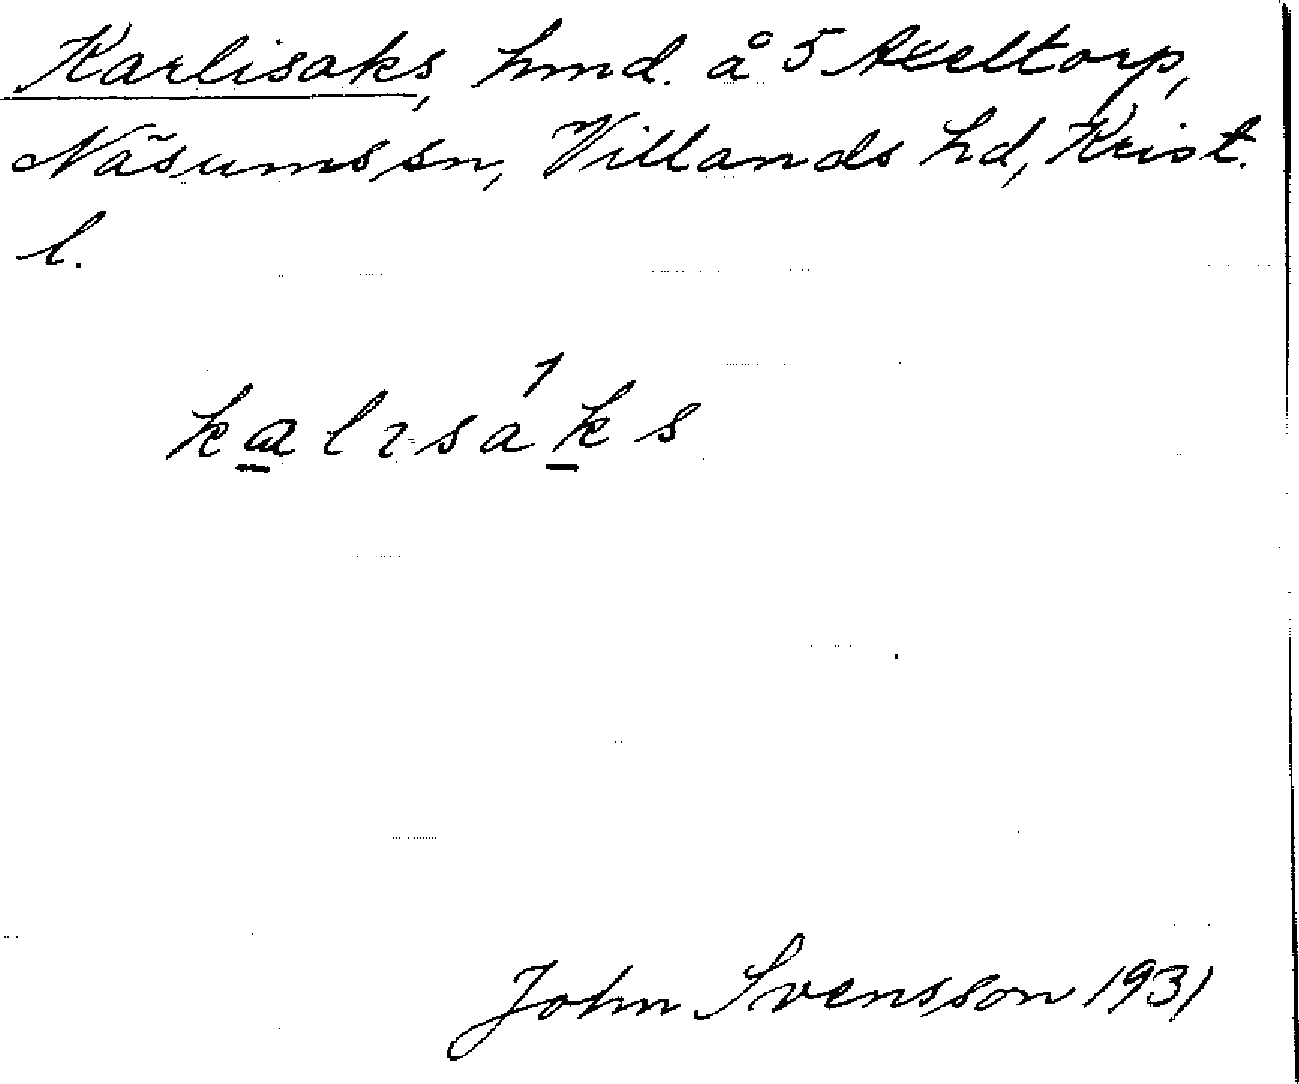 Karlisaks, hmd. å 5 Axeltorp,
Näsums sn, Villands hd, Krist.
l.
kalısáks
John Svensson 1931